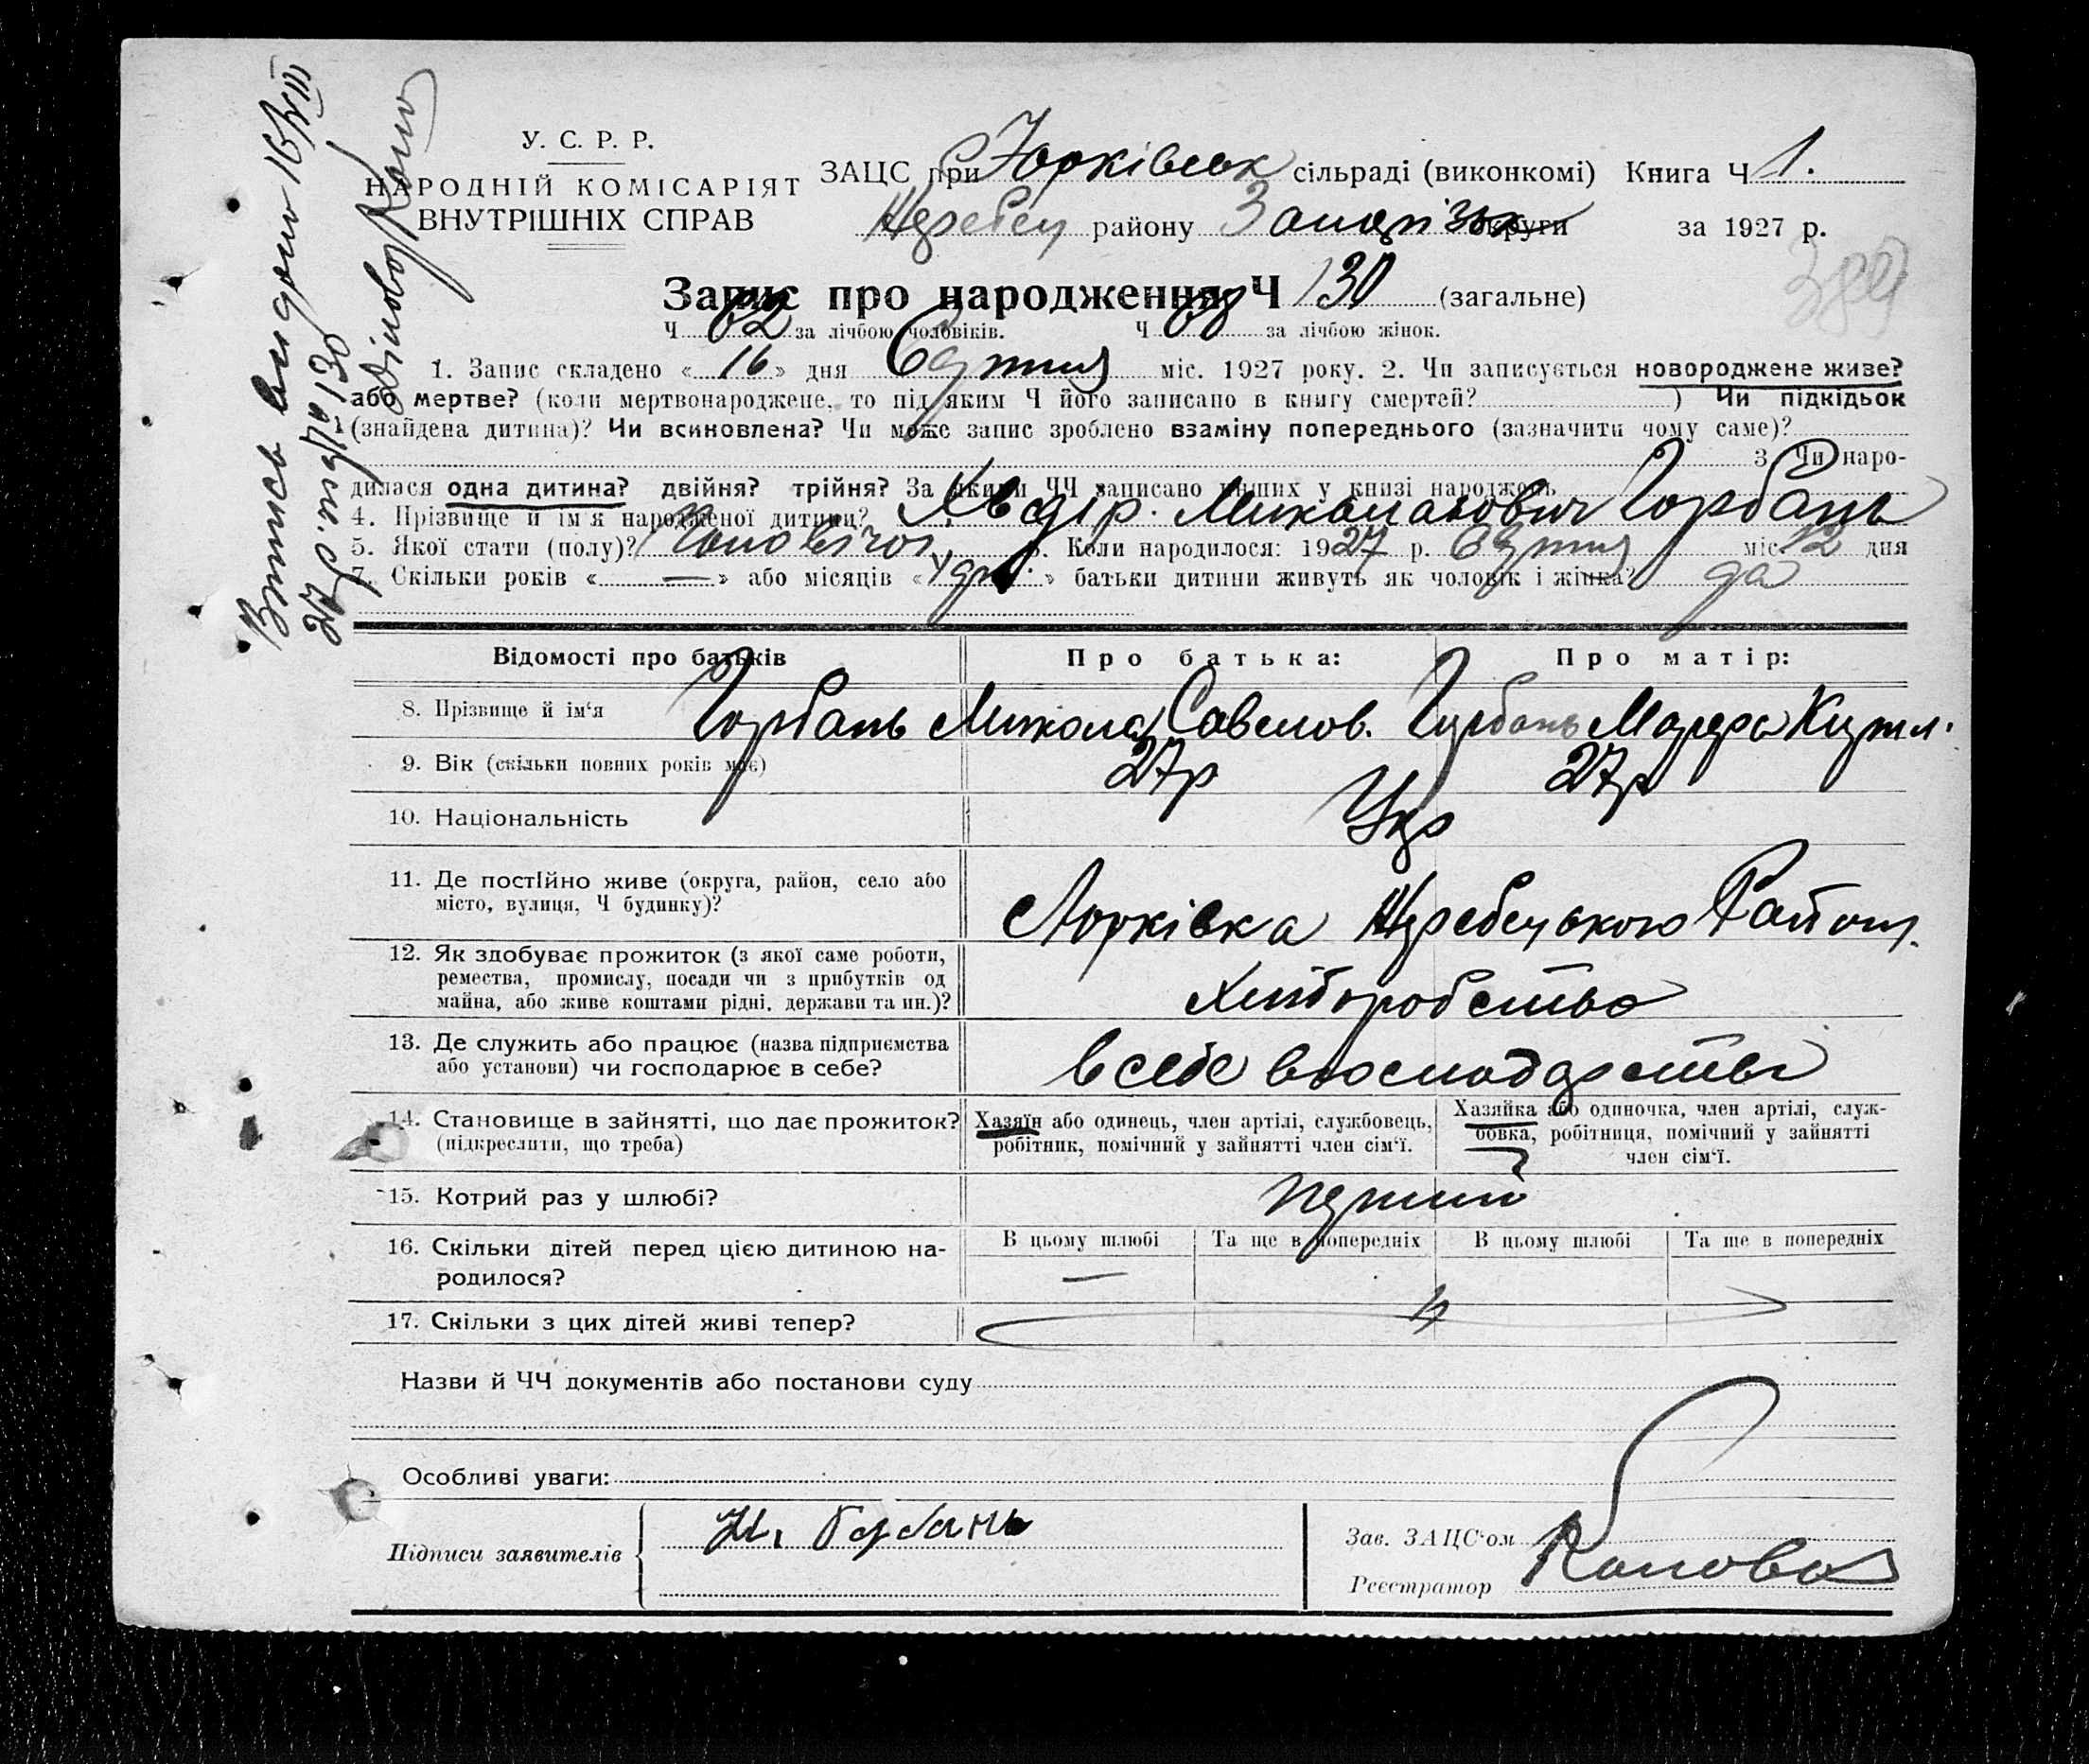 Впись видано 16/VIII
27 р. під 130
У. С. Р. Р.
НАРОДНІЙ КОМІСАРІЯТ
ВНУТРІШНІХ СПРАВ
ЗАЦС при Юрківськ сільраді (виконкомі) Книга Ч 1.
Жеребец району Запоріз округи за 1927 р.
389
Запис про народження Ч 130 (загальне)
Ч 62 за лічбою чоловіків. Ч 68 за лічбою жінок.
1. Запис складено « 16 » дня Серпня міс. 1927 року. 2. Чи записується новороджене живе?
або мертве? (коли мертвонароджене, то під яким Ч його записано в книгу смертей? ) Чи підкідьок
(знайдена дитина)? Чи всиновлена? Чи може запис зроблено взаміну попереднього (зазначити чому саме)?
3 Чи наро-
дилася одна дитина? двійня? трійня? За якими ЧЧ записано инших у книзі народжень
4. Прізвище й ім'я народженої дитини? Хведір. Миколайович Горбань
5. Якої стати (полу)? Чоловічої 6. Коли народилося: 1927 р. Серпня міс. 12 дня
7. Скільки років « — » або місяців « » батьки дитини живуть як чоловік і жінка? да
Відомості про батьків Про батька: Про матір:
8. Прізвище й ім'я Горбань Микола Савелов. Горбань Марфа Кирил.
9. Вік (скільки повних років має) 27р 27р
10. Національність Укр
11. Де постійно живе (округа, район, село або
місто, вулиця, Ч будинку)?
Юрківка Жеребецького Району.
12. Як здобуває прожиток (з якої саме роботи,
ремества, промислу, посади чи з прибутків од
майна, або живе коштами рідні, держави та ин.)?
Хліборобство
13. Де служить або працює (назва підприємства
або установи) чи господарює в себе?
в себе в госпадарстві
14. Становище в зайнятті, що дає прожиток?
(підкреслити, що треба)
Хазяїн або одинець, член артілі, службовець,
робітник, помічний у зайнятті член сім'ї.
Хазяйка або одиночка, член артілі, служ-
бовка, робітниця, помічний у зайнятті
член сім'ї.
15. Котрий раз у шлюбі? перший
16. Скільки дітей перед цією дитиною на-
родилося?
В цьому шлюбі Та ще в попередніх В цьому шлюбі Та ще в попередніх
—
17. Скільки з цих дітей живі тепер? 4
Назви й ЧЧ документів або постанови суду
Особливі уваги:
Підписи заявителів
Зав. ЗАЦС'ом
Реєстратор